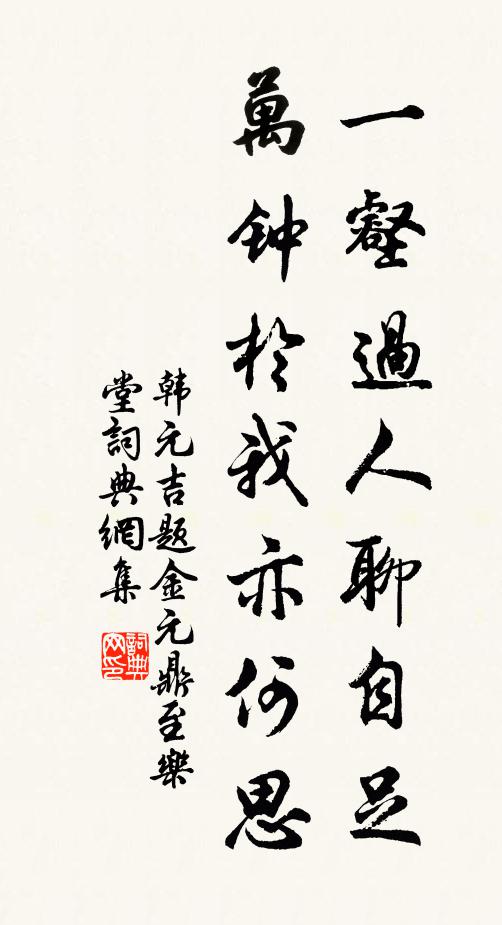 一壑過人聊自足
萬钟於我亦何思
韩元吉题金元鼎至樂
堂詞典網集
詞典网印